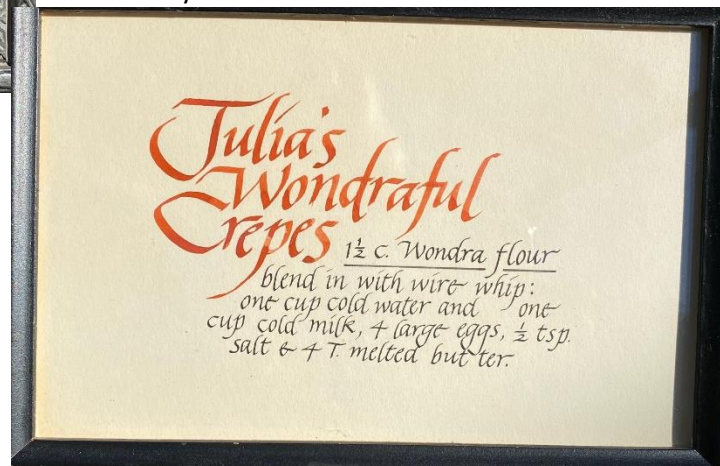 Julia's
Wondraful
Crepes
1½ c. Wondra flour
blend in with wire whip:
one cup cold water and one
cup cold milk, 4 large eggs, ½ tsp.
salt & 4 T. melted but ter.